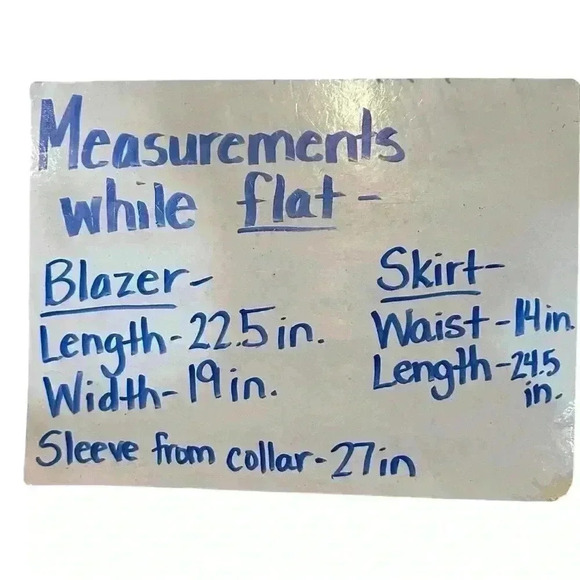 Measurements
while flat-
Blazer-
Length-22.5 in.
Width-19 in.
Sleeve from collar-27in
Skirt-
Waist-14in.
Length-24.5
in.